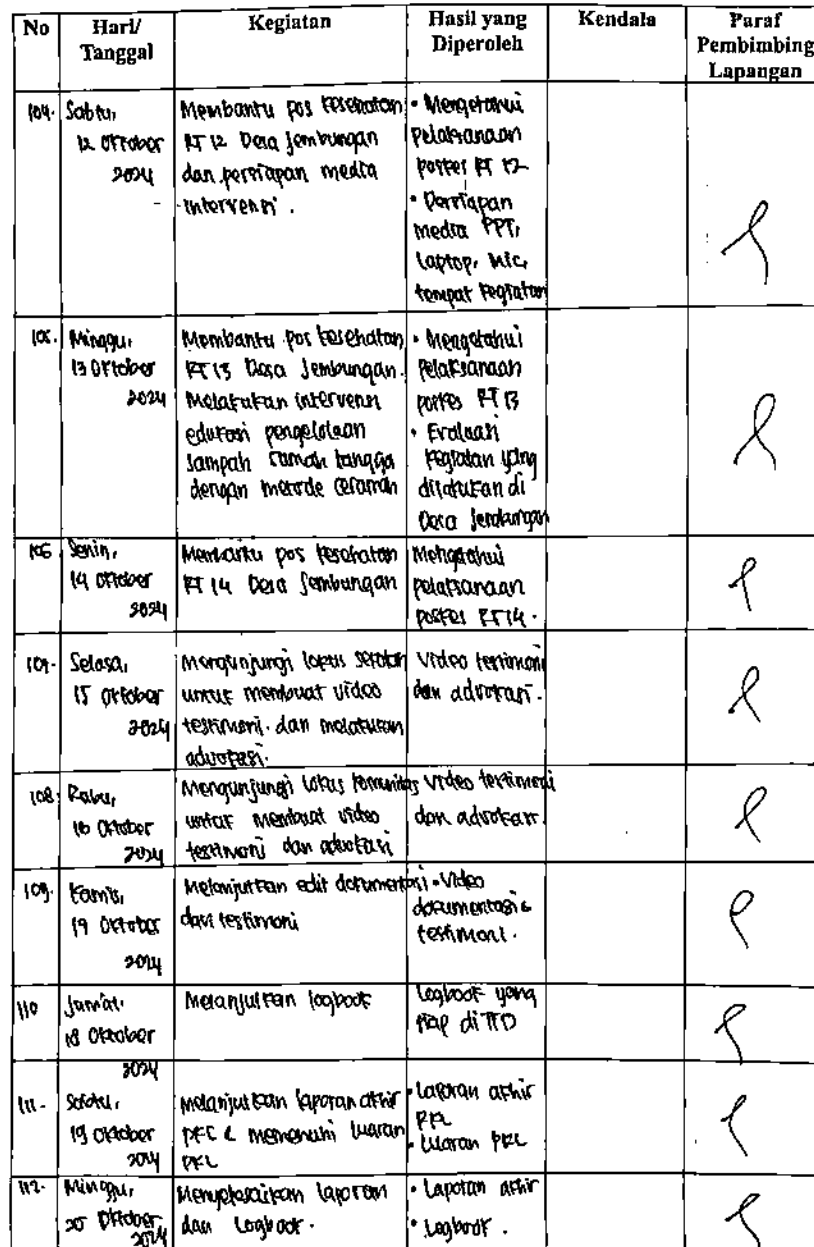 No
Hari/
Tanggal
Kegiatan
Hasil yang
Diperoleh
Kendala
Paraf
Pembimbing
Lapangan
104. Sabtu,
12 Oktober
2024
Membantu pos kesehatan
RT 12 Desa Jembungan
dan persiapan media
intervensi.
• Mengetahui
pelaksanaan
poskes RT 12
• Persiapan
media PPT,
laptop, mic,
tempat kegiatan
105. Minggu,
13 Oktober
2024
Membantu pos kesehatan
RT 13 Desa Jembungan.
Melakukan intervensi
edukasi pengelolaan
sampah rumah tangga
dengan metode ceramah
• Mengetahui
pelaksanaan
poskes RT 13
• Evaluasi
kegiatan yang
dilakukan di
Desa Jembungan
106 Senin,
14 Oktober
2024
Membantu pos kesehatan
RT 14 Desa Jembungan
Mengetahui
pelaksanaan
poskes RT 14.
107. Selasa,
15 Oktober
2024
Mengunjungi lokus sekolah
untuk membuat video
testimoni. dan melakukan
advokasi.
Video testimoni
dan advokasi.
108. Rabu,
16 Oktober
2024
Mengunjungi lokus komunitas
untuk membuat video
testimoni dan advokasi
Video testimoni
dan advokasi.
109. Kamis,
19 Oktober
2024
Melanjutkan edit dokumentasi
dari testimoni
• Video
dokumentasi &
testimoni.
110 Jum'at.
18 Oktober
2024
Melanjutkan logbook
Logbook yang
siap di TTD
111. Sabtu,
19 Oktober
2024
Melanjutkan laporan akhir
PKL & memenuhi luaran
PKL
• Laporan akhir
PKL
• Luaran PKL
112. Minggu,
20 Oktober
2024
Menyelesaikan laporan
dan Logbook.
• Laporan akhir
• Logbook.